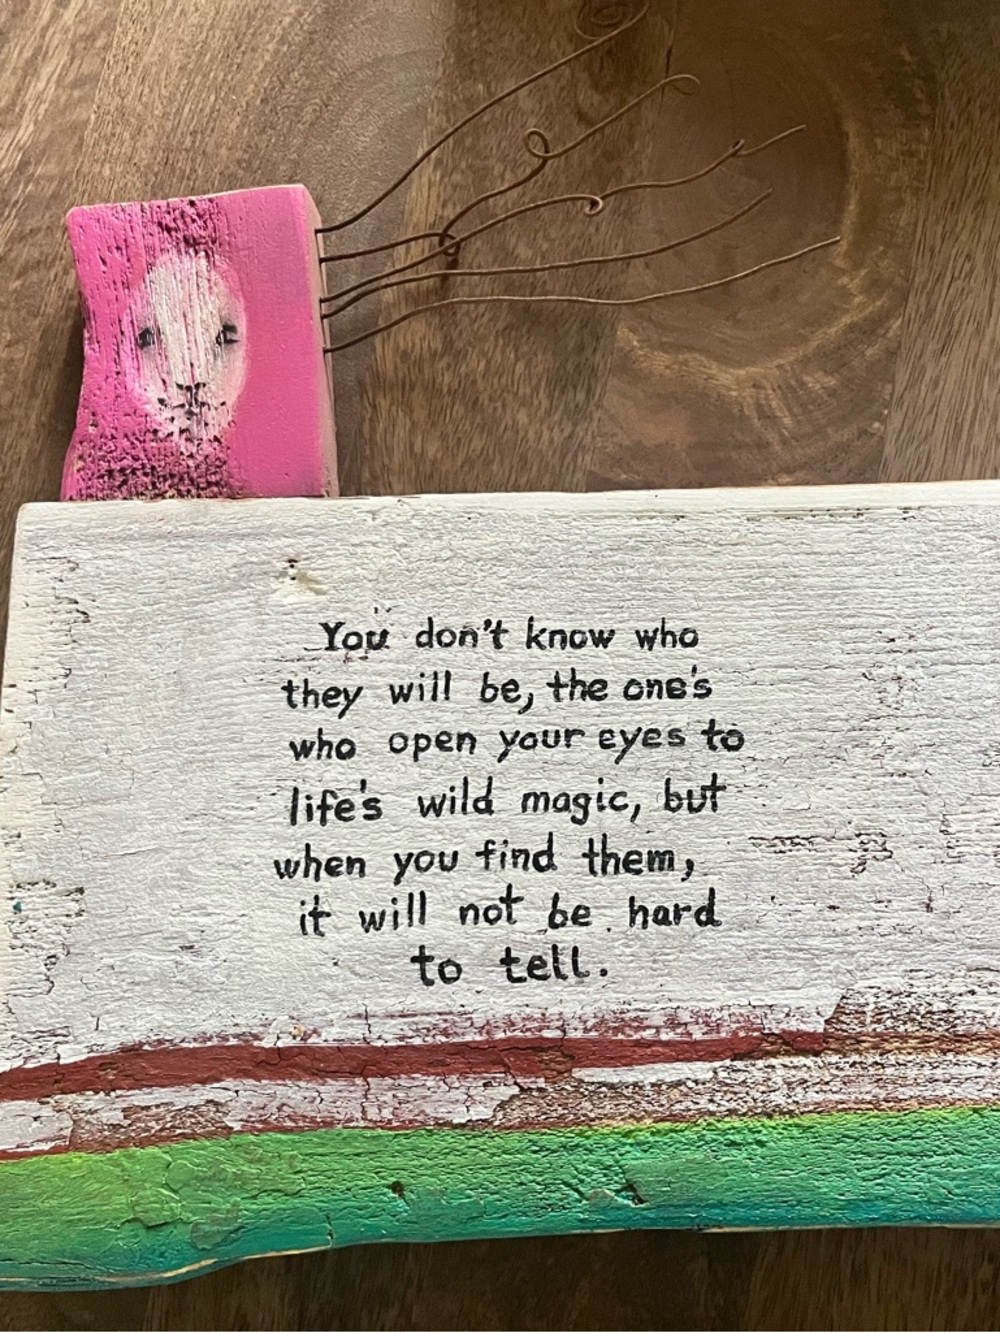 You don't know who
they will be, the one's
who open your eyes to
life's wild magic, but
when you find them,
it will not be hard
to tell.